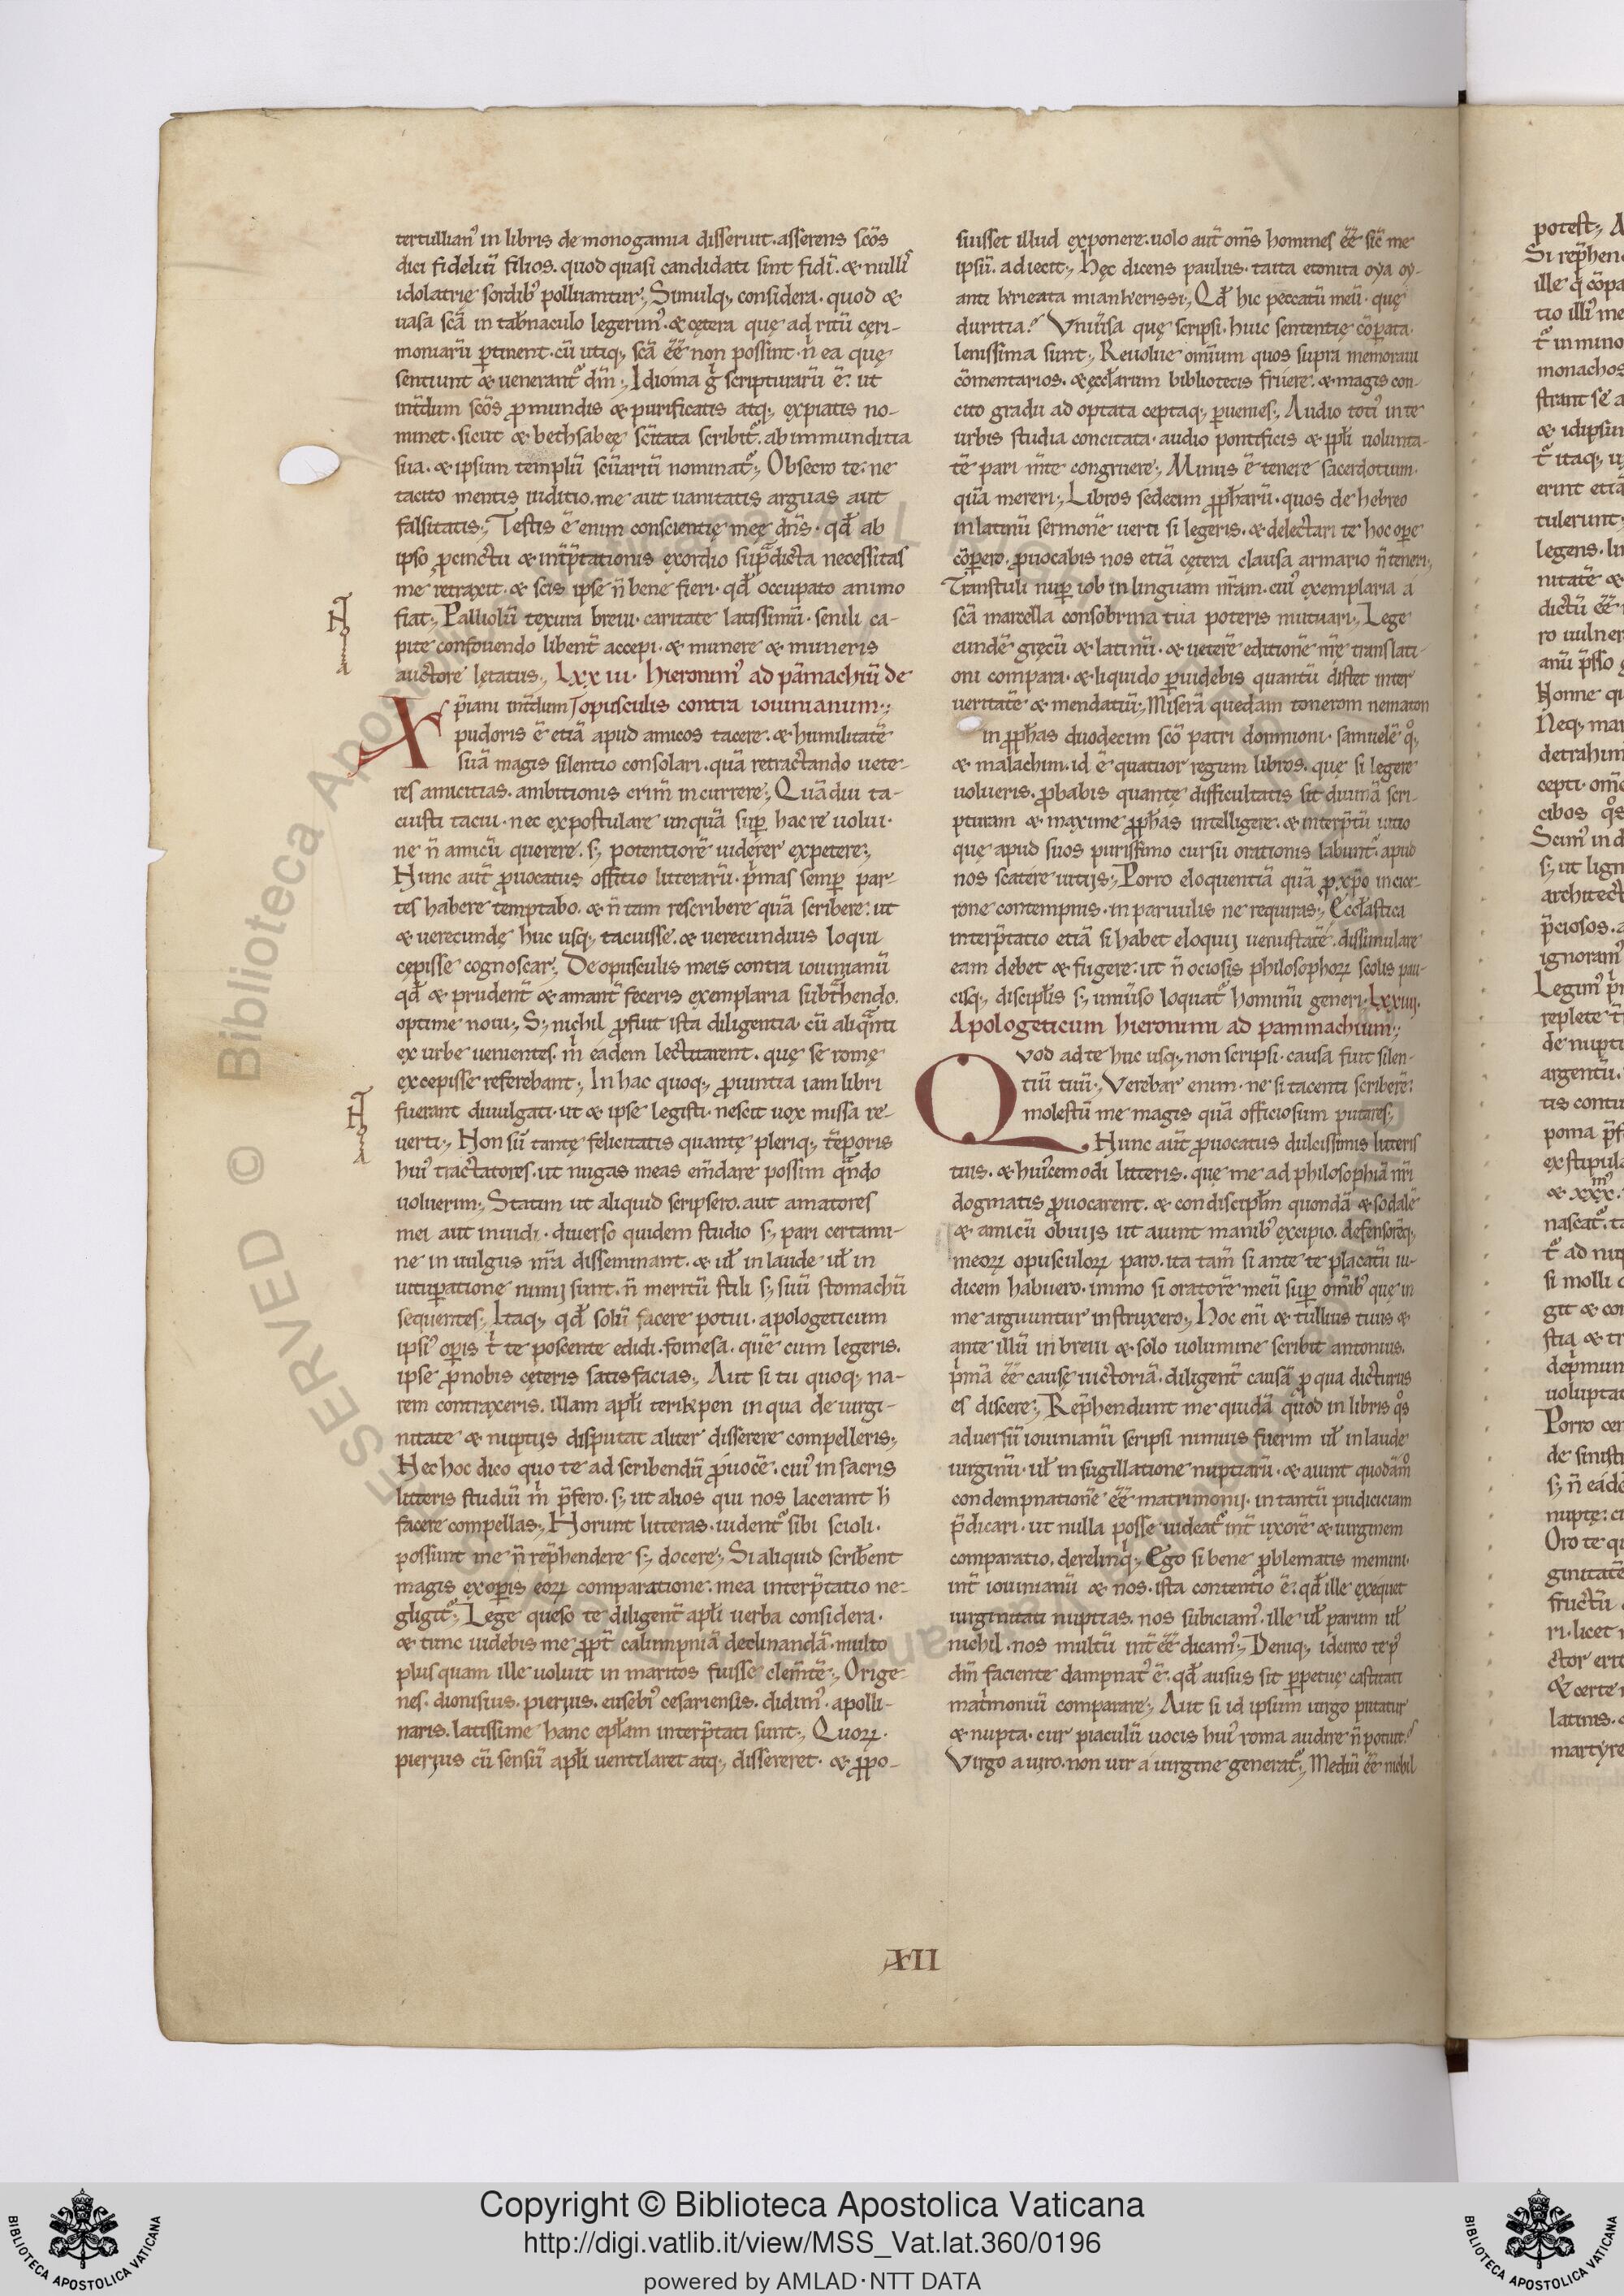 tertullian᾽ in libris de monogamia disseruit. asserens sc̄os
dici fideliū filios. quod quasi candidati sint fidī. & nulli᾽
idolatrię sordib᾽ polluantur; Simulq; considera. quod &
uasa sc̄a in tab̄naculo legerim᾽. & cętera quę ad ritū cęri-
moniarū ptinent. cū utiq; sc̄a ēē non possint. n̄ ea quę
sentiunt & uenerant᾽ dm̄; Idioma g̊ scripturarū ē. ut
int̄dum sc̄os pro mundis & purificatis atq; expiatis no-
minet. sicut & bethsabęę sc̄itata scribit᾽. ab immunditia
sua. & ipsum templū sc̄uariū nominat᾽; Obsecro te. ne
tacito mentis iuditio. me aut uanitatis arguas aut
falsitatis; Testis ē enim conscientię meę dn̄s. qd̄ ab
ipso pcinctu & int̄p̄tationis exordio sup̄dicta necessitas
me retraxit. & scis ipse n̄ bene fieri. qd̄ occupato animo
fiat; Palliolū texura breui. caritate latissimū. senili ca-
pite confouendo libent̄ accepi. & munere & muneris
auctore lętatus; LXXIII. hieronim᾽ ad pāmachiū de
Xp̄iani int̄dum opusculis contra iouinianum;
pudoris ē etiā apud amicos tacere. & humilitatē
suā magis silentio consolari. quā retractando uete-
res amicitias. ambitionis crim̄ incurrere; Quādiu ta-
cuisti tacui. nec expostulare unquā sup hac re uolui.
ne n̄ amicū querere. s; potentiorē uiderer expetere;
Hunc aūt puocatus offitio litterarū. pͥmas semp par-
tes habere temptabo. & n̄ tam rescribere quā scribere. ut
& uerecundę huc usq; tacuisse. & uerecundius loqui
cępisse cognoscar; De opusculis meis contra iouinianū
qd̄ & prudent̄ & amant̄ feceris exemplaria subt̄hendo.
optime noui; S; nichil pfuit ista diligentia. cū aliqͣnti
ex urbe uenientes. mͥ eadem lectitarent. quę se romę
excepisse referebant; In hac quoq; puintia iam libri
fuerant diuulgati. ut & ipse legisti. nescit uox missa re-
uerti; Non sū tantę felicitatis quantę pleriq; tēporis
hui᾽ tractatores. ut nugas meas em̄dare possim qn̄do
uoluerim; Statim ut aliquid scripsero. aut amatores
mei aut inuidi. diuerso quidem studio s; pari certami-
ne in uulgus nr̄a disseminant. & ul̄ in laude ul̄ in
uitupatione nimij sunt. n̄ meritū stili s; suū stomachū
sequentes; Itaq; qd̄ solū facere potui. apologeticum
ipsi᾽ opis tͥ te poscente edidi. fomesa. quē cum legeris.
ipse pro nobis cęteris satisfacias; Aut si tu quoq; na-
rem contraxeris. illam apl̄i terikpen in qua de uirgi-
nitate & nuptijs disputat aliter disserere compelleris;
Nec hoc dico quo te ad scribendū puocē. cui᾽ in sacris
litteris studiū mͥ p̄fero. s; ut alios qui nos lacerant h̄
facere compellas; Norunt litteras. uident᾽ sibi scioli.
possunt me n̄ rep̄hendere s; docere; Si aliquid scrib̄ent
magis ex opis eoꝝ comparatione. mea interp̄tatio ne-
gligit᾽; Lege queso te diligent̄ apl̄i uerba considera.
& tunc uidebis me ppt̄ calumpniā declinandā. multo
plus quam ille uoluit in maritos fuisse clem̄tē; Orige-
nes. dionisius. pierius. eusebi᾽ cesariensis. didim᾽. apolli-
naris. latissime hanc epl̄am interp̄tati sunt; Quoꝝ.
pierius cū sensū apl̄i uentilaret atq; dissereret. & ppo-
suisset illud exponere. uolo aūt oms̄ homines ēē sic̄ me
ipsū. adiecit; hęc dicens paulus. taita etonita oya oy-
anti krieata miankerissi; Qd̄ hic peccatū meū. quę
duritia? Vniūsa quę scripsi. huic sententię cōpata.
lenissima sunt; Reuolue omium quos supra memoraui
cōmentarios. & ęccl̄arum bibliotecis fruere. & magis con-
cito gradu ad optata ceptaq; puenies; Audio toti᾽ in te
urbis studia concitata. audio pontificis & ppl̄i uolunta-
tē pari m̄te congruere; Minus ē tenere sacerdotium.
quā mereri; Libros sedecim pph̄arū. quos de hebreo
in latinū sermonē uerti si legeris. & delectari te hoc ope
cōpero. puocabis nos etiā cętera clausa armario n̄ teneri;
Transtuli nup iob in linguam nr̄am. cui᾽ exemplaria á
sc̄a marcella consobrina tua poteris mutuari; Lege
eundē gręcū & latinū. & ueterē editionē nr̄e translati-
oni compara. & liquido puidebis quantū distet inter
ueritatē & mendatiū; Miserā quedam tonerom nematon
in pph̄as duodecim sc̄o patri domnioni. samuelē q̊;
& malachim. id ē quatuor regum libros. que si legere
uolueris. pbabis quantę difficultatis sit diuinā scri-
pturam & maxime pph̄as intelligere. & interp̄tū uitio
quę apud suos purissimo cursu orationis labunt᾽. apud
nos scatere uitijs; Porro eloquentiā quā p xp̄o in cice-
rone contempnis. in paruulis ne requiras; Eccl̄astica
interp̄tatio etiā si habet eloquij uenustatē. dissimulare
eam debet & fugere. ut n̄ ociosis philosophoꝝ scolis pau-
cisq; discipl̄is s; uniūso loquat᾽ hominū generi. LXXIIII.
Apologeticum hieronimi ad pammachium;
Quod ad te huc usq; non scripsi. causa fuit silen-
tiū tuū; Verebar enim. ne si tacenti scriberē.
molestū me magis quā officiosum putares;
Nunc aūt puocatus dulcissimis litteris
tuis. & hui᾽cemodi litteris. que me ad philosophiā nr̄i
dogmatis puocarent. & condiscipl̄m quondā & sodalē
& amicū obuijs ut aiunt manib᾽ excipio. defensorēq;
meoꝝ opusculoꝝ paro. ita tam̄ si ante te placatū iu-
dicem habuero. immo si oratorē meū sup omīb᾽ que in
me arguuntur instruxero; Hoc eni᾽ & tullius tuus &
ante illū in breui & solo uolumine scribit antonius.
pͥmā ēē causę uictoriā. diligent̄ causā p qua dicturus
es discere; Rep̄hendunt me quidā quod in libris q̊s
aduersū iouinianū scripsi nimius fuerim ul̄ in laude
uirginū. ul̄ in sugillatione nuptiarū. & aiunt quodam̊
condempnationē ēē matrimonij. in tantū pudiciciam
p̄dicari. ut nulla posse uideat᾽ int̄ uxorē & uirginem
comparatio. derelinqͥ; Ego si bene pblematis memini.
int̄ iouinianū & nos. ista contentio ē. qd̄ ille exequet
uirginitati nuptias. nos subiciam᾽. ille ul̄ parum ul̄
nichil. nos multū int̄ēē dicam᾽; Deniq; idcirco te p᾽
dm̄ faciente dampnat᾽ ē. qd̄ ausus sit ppetuę castitati
matͥmoniū comparare; Aut si id ipsum uirgo putatur
& nupta. cur piaculū uocis hui᾽ roma audire n̄ potuit?
Virgo a uiro. non uir á uirgine generat᾽; Mediū ēē nichil
XII
Copyright © Biblioteca Apostolica Vaticana
http://digi.vatlib.it/view/MSS_Vat.lat.360/0196
powered by AMLAD·NTT DATA
BIBLIOTECA APOSTOLICA VATICANA
BIBLIOTECA APOSTOLICA VATICANA